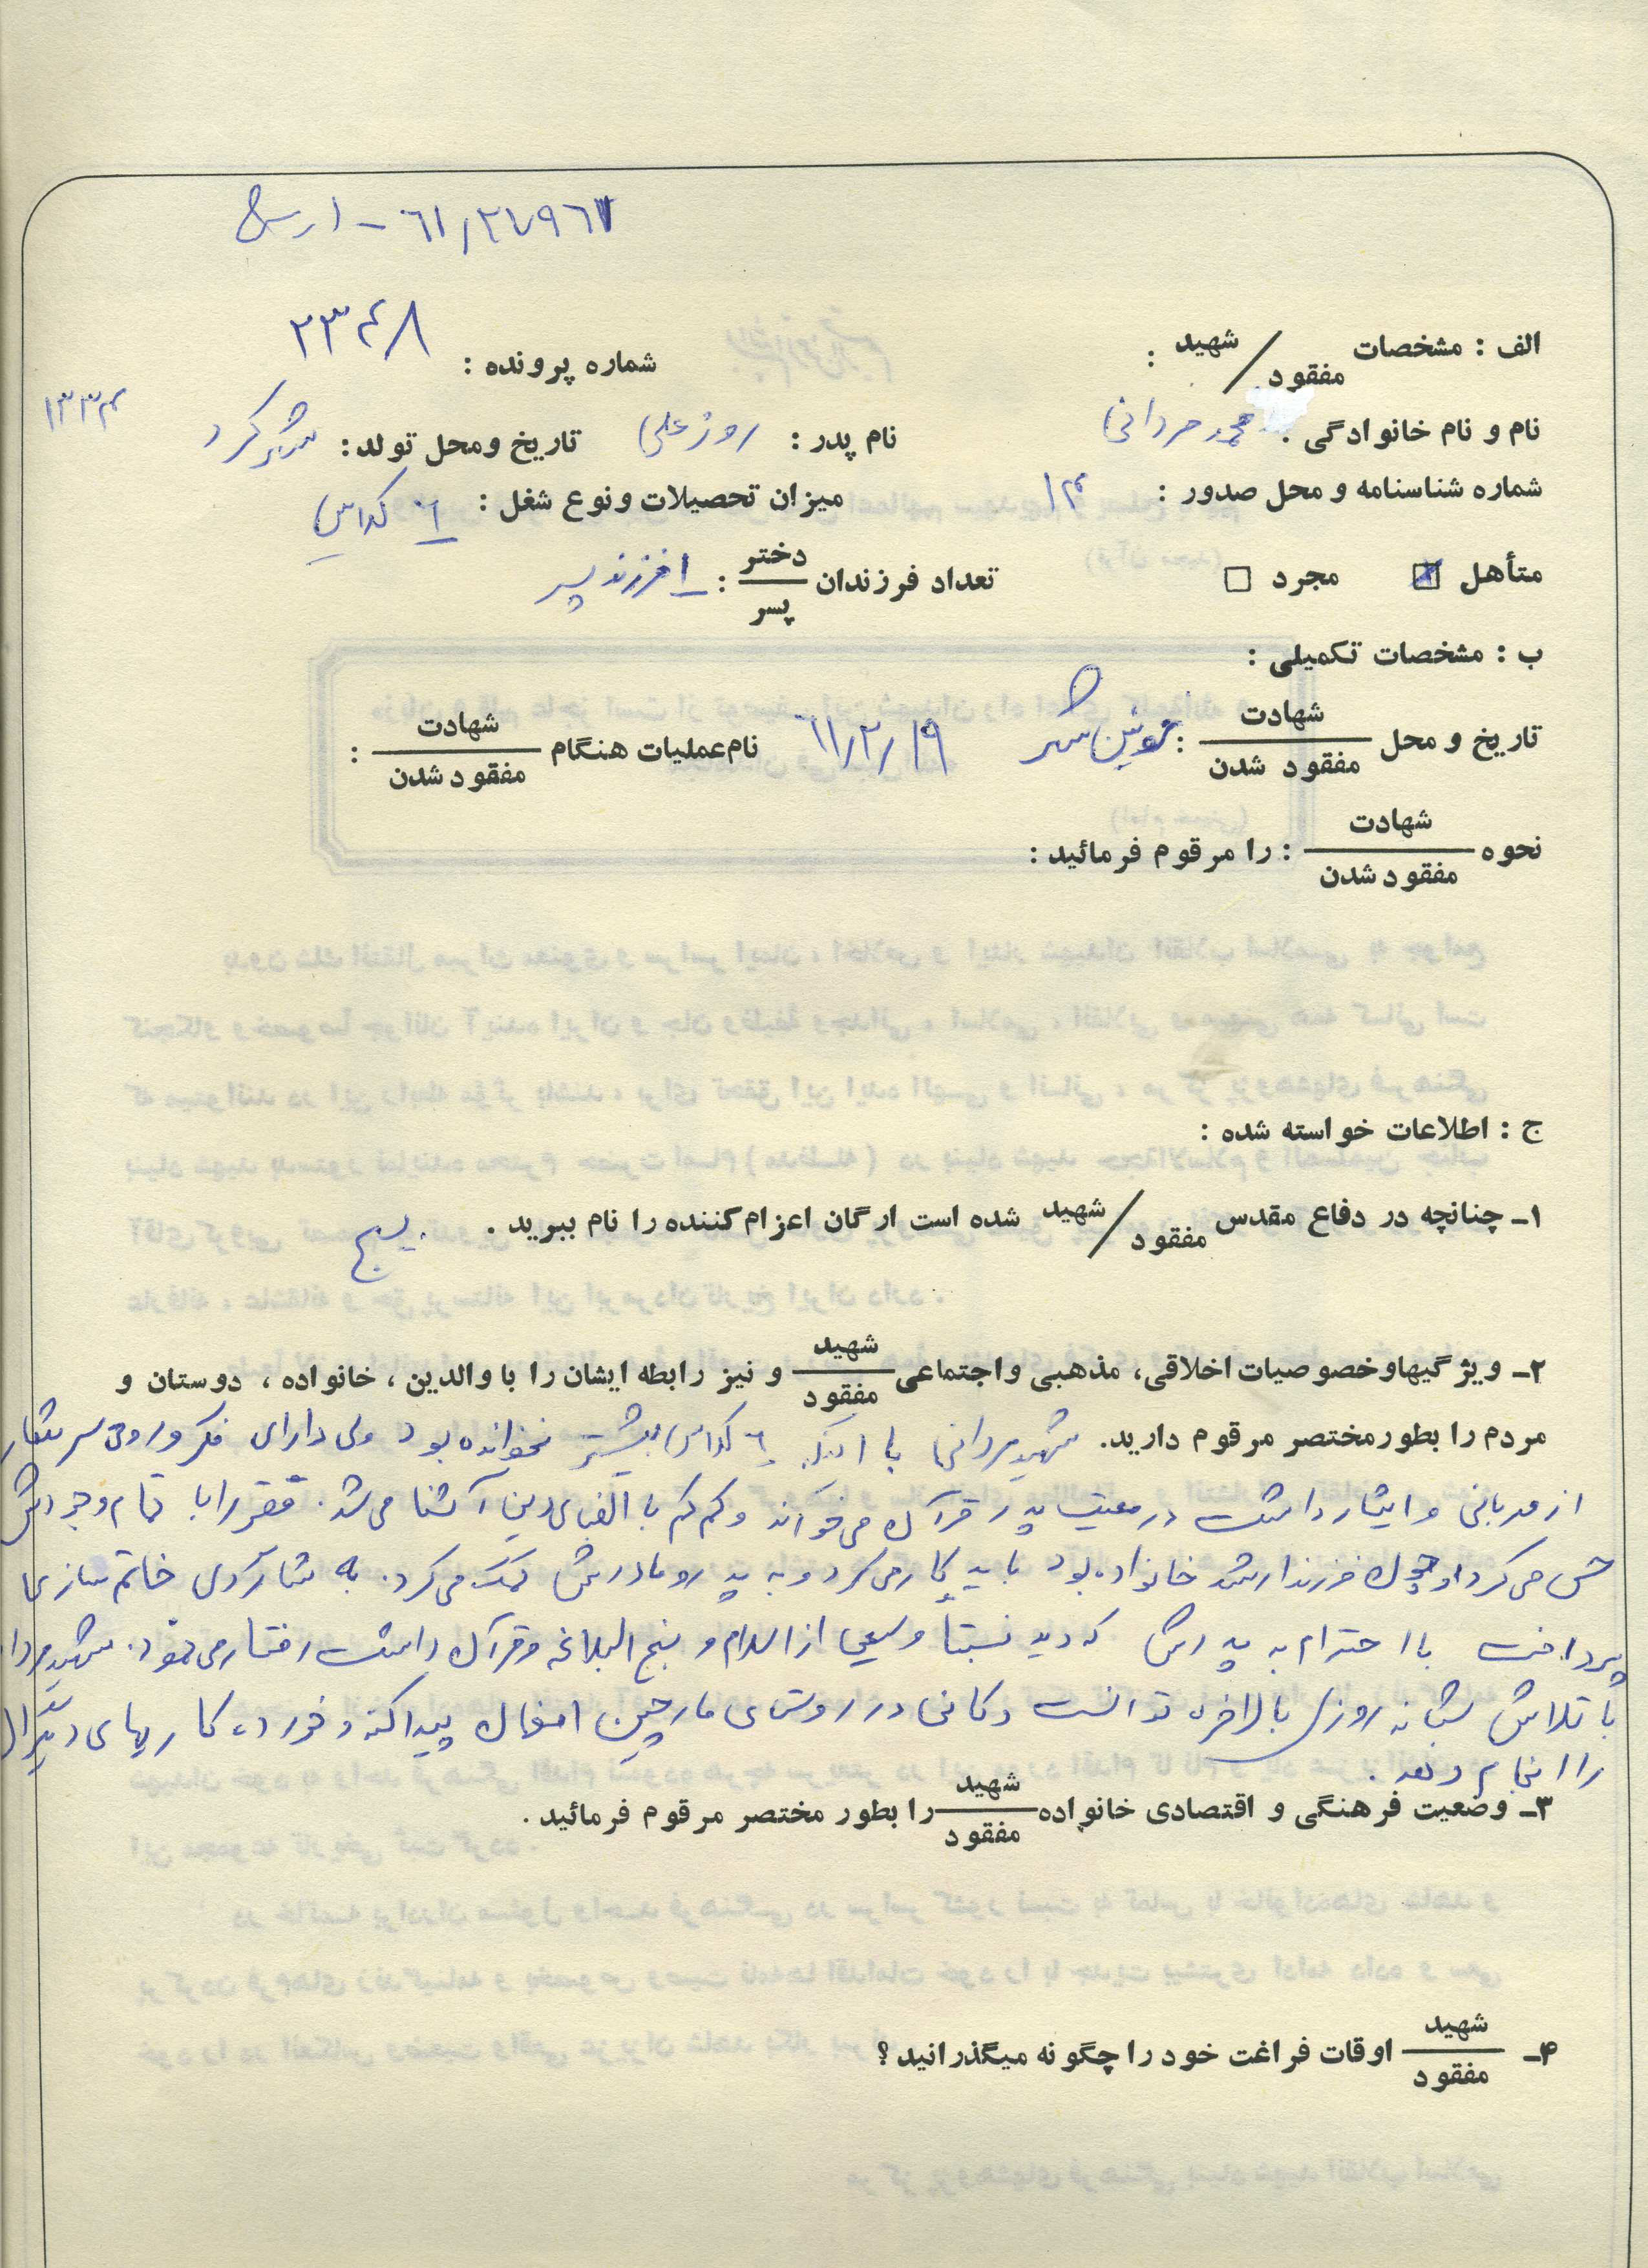 ۶۱/۲۷۹۶۷ - ارسال
الف : مشخصات شهید / مفقود :
شماره پرونده : ۲۳۴۸
نام و نام خانوادگی : محمد مردانی نام پدر : روزعلی تاریخ ومحل تولد : شهرکرد ۱۳۳۴
شماره شناسنامه و محل صدور : ۱۴ میزان تحصیلات و نوع شغل : ۶ کلاس
متأهل مجرد تعداد فرزندان دختر / پسر : ۱ فرزند پسر
ب : مشخصات تکمیلی :
تاریخ و محل شهادت / مفقود شدن : خونین شهر ۶۱/۲/۱۹ نام عملیات هنگام شهادت / مفقود شدن :
نحوه شهادت / مفقود شدن : را مرقوم فرمائید :
ج : اطلاعات خواسته شده :
۱ـ چنانچه در دفاع مقدس شهید / مفقود شده است ارگان اعزام کننده را نام ببرید . بسیج
۲ـ ویژگیهاوخصوصیات اخلاقی، مذهبی واجتماعی شهید / مفقود و نیز رابطه ایشان را با والدین ، خانواده ، دوستان و
مردم را بطورمختصر مرقوم دارید. شهید مردانی با اینکه ۶ کلاس بیشتر نخوانده بود ولی دارای فکر و روحی سرشار
از مهربانی و ایثار داشت در معیت پدر قرآن می‌خواند و کم کم با الفبای دین آشنا می‌شد. فقر را با تمام وجودش
حس می‌کرد او چون فرزند ارشد خانواده بود باید کار می‌کرد و به پدر و مادرش کمک می‌کرد. به شاگردی خاتم سازی
پرداخت با احترام به پدرش که دید نسبتاً وسیعی از اسلام و نهج البلاغه و قرآن داشت رفتار می‌نمود. شهید مردا
با تلاش شبانه روزی بالاخره توانست دکانی در روستای مارچین اصفهان پیدا کند و خرده کاریهای
را انجام دهد.
۳ـ وضعیت فرهنگی و اقتصادی خانواده شهید / مفقود را بطور مختصر مرقوم فرمائید .
۴ـ شهید / مفقود اوقات فراغت خود را چگونه میگذرانید ؟